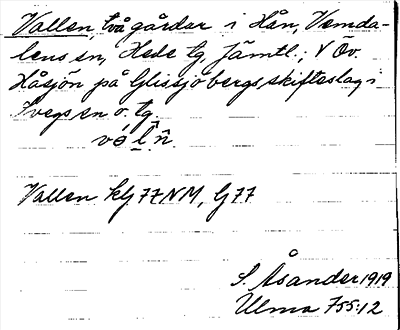 Vallen, två gårdar i Hån, Vemda-
lens sn, Hede tg, Jämtl.; V Öv.
Håsjön på Glissjöbergs skifteslag i
Svegs sn o. tg.
Vallen kg 77 NM, G 77
S. Åsander 1919
Ulma 755:12